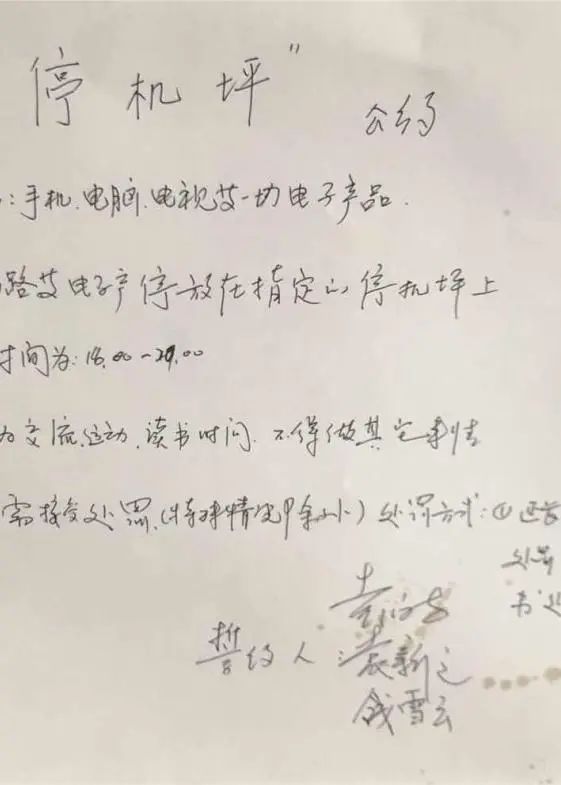 停机坪”
公约
:手机、电脑、电视等一切电子产品.
路等电子产停放在指定的停机坪上
时间为:18.00-20.00
为交流、运动、读书时间.不得做其它事情
需接受处罚.(特殊情况除外)处罚方式:①
处
书
誓约人:袁新之
钱雪云